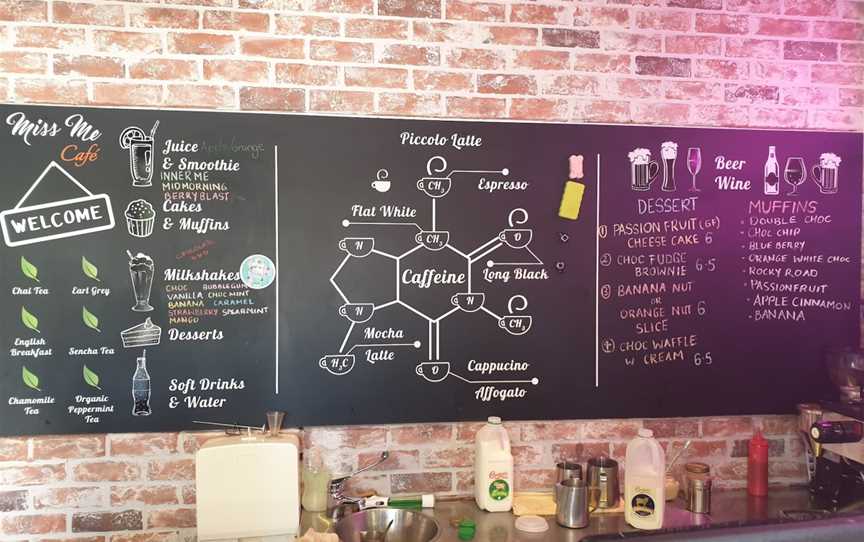 Miss Me
Café
WELCOME
Chai Tea
Earl Grey
English
Breakfast
Sencha Tea
Chamomile
Tea
Organic
Peppermint
Tea
Juice Apple/Orange
& Smoothie
INNER ME
MID MORNING
BERRY BLAST
Cakes
& Muffins
CHOCOLATE
Milkshakes
CHOC BUBBLEGUM
VANILLA CHOC MINT
BANANA CARAMEL
STRAWBERRY SPEARMINT
MANGO
Desserts
Soft Drinks
& Water
Piccolo Latte
CH3
Espresso
Flat White
N
CH3
O
Caffeine
Long Black
N
N
CH3
Mocha
Latte
H3C
O
Cappucino
Affogato
Beer
Wine
DESSERT
1 PASSION FRUIT (GF)
CHEESE CAKE 6
2 CHOC FUDGE
BROWNIE 6.5
3 BANANA NUT
OR
ORANGE NUT 6
SLICE
4 CHOC WAFFLE
W CREAM 6.5
MUFFINS
• DOUBLE CHOC
• CHOC CHIP
• BLUEBERRY
• ORANGE WHITE CHOC
• ROCKY ROAD
• PASSIONFRUIT
• APPLE CINNAMON
• BANANA